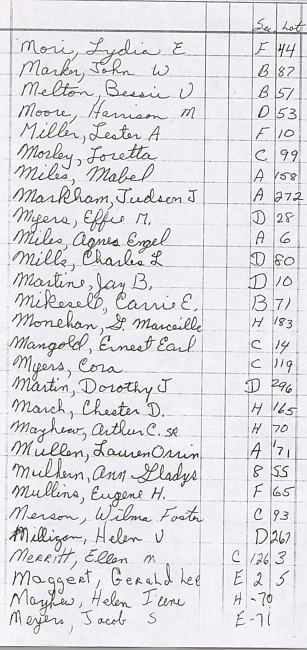 Sec Lot
Mori, Lydia E F 44
Marker, John W B 87
Melton, Bessie V B 51
Moore, Harrison M D 53
Miller, Lester A F 10
Morley, Loretta C 99
Miles, Mabel A 158
Markham, Judson J A 272
Myers, Effie M. D 28
Miles, Agnes Engel A 6
Mills, Charles L D 80
Martine, Jay B. D 10
Mikesell, Carrie E. B 71
Monehan, G. Marceille H 183
Mangold, Ernest Earl C 14
Myers, Cora C 119
Martin, Dorothy J D 296
March, Chester D. H 165
Mayhew, Arthur C. SR H 70
Mullen, Lauren Orrin A 71
Mulhern, Ann Gladys B 55
Mullins, Eugene H. F 65
Merson, Wilma Foster C 93
Milligan, Helen V D 267
Merritt, Ellen M C 126 3
Maggert, Gerahd Lee E 2 5
Mayhew, Helen Irene H -70
Meyers, Jacob S E-71